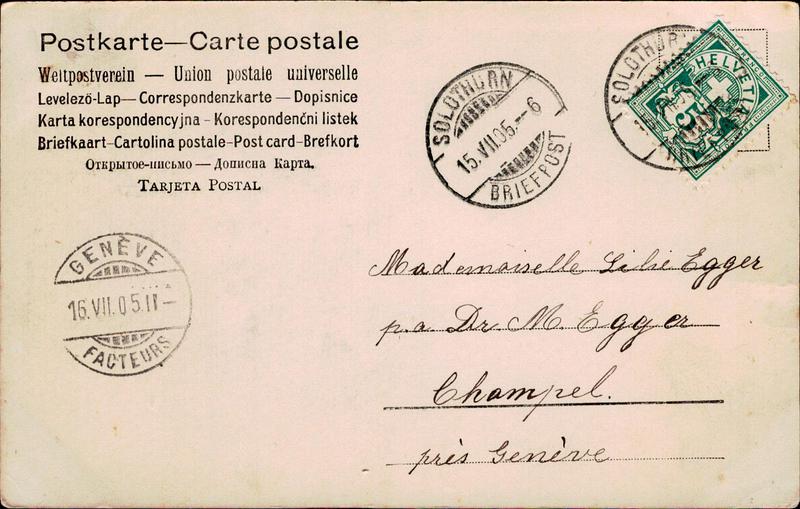 Postkarte—Carte postale
Weltpostverein — Union postale universelle
Levelező-Lap—Correspondenzkarte—Dopisnice
Karta korespondencyjna - Korespondenční listek
Briefkaart-Cartolina postale-Post card-Brefkort
Открытое-письмо — Дописна Карта.
TARJETA POSTAL
SOLOTHURN
15.VII.05.–6
BRIEFPOST
SOLOTHURN
HELVETIA
5
GENÈVE
16.VII.05.11–
FACTEURS
Mademoiselle Lilie Egger
p.a Dr M. Egger
Champel.
près Genève